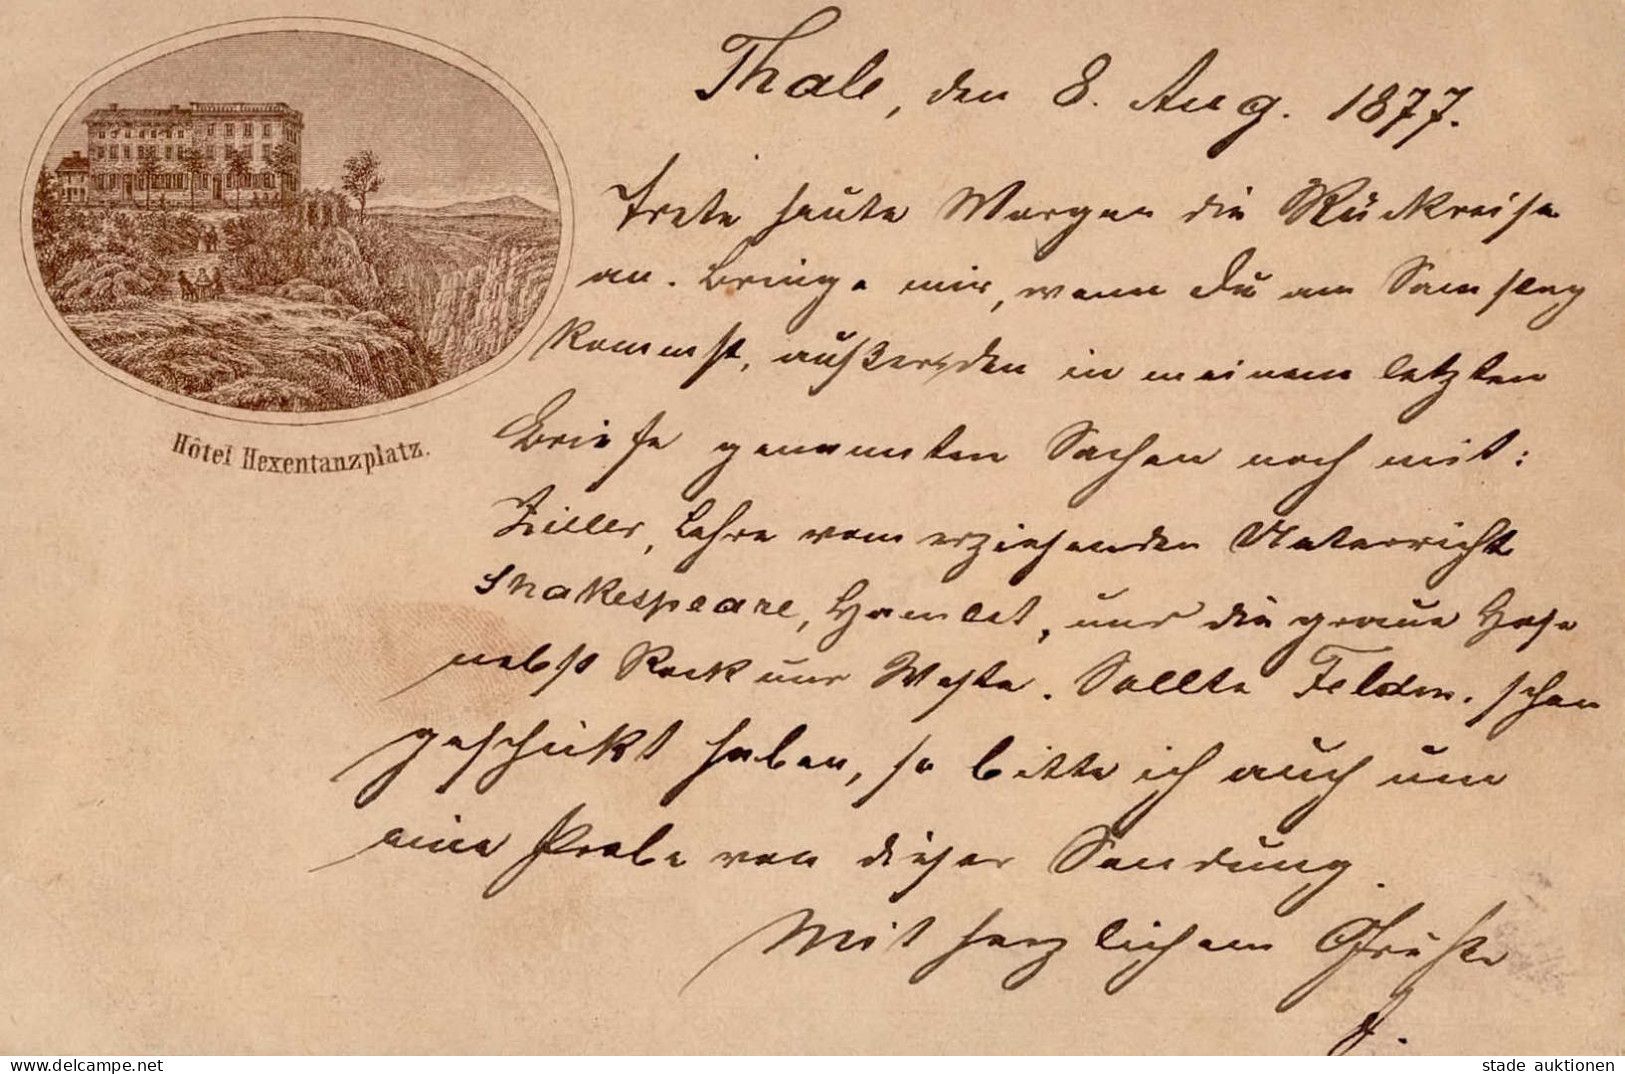 Thale, den 8. Aug. 1877.
Trete heute Morgen die Rückreise
an. Bringe mir, wenn Du am Samstag
kommst, außer den in meinem letzten
Briefe genannten Sachen noch mit:
Ziller, Lehre vom erziehenden Unterricht
Shakespeare, Hamlet, und die graue Hose
nebst Rock und Weste. Sollte Feldm. schon
geschickt haben, so bitte ich auch um
eine Probe von dieser Sendung.
Mit herzlichem Gruße
Hôtel Hexentanzplatz.
delcampe.net
stade auktionen